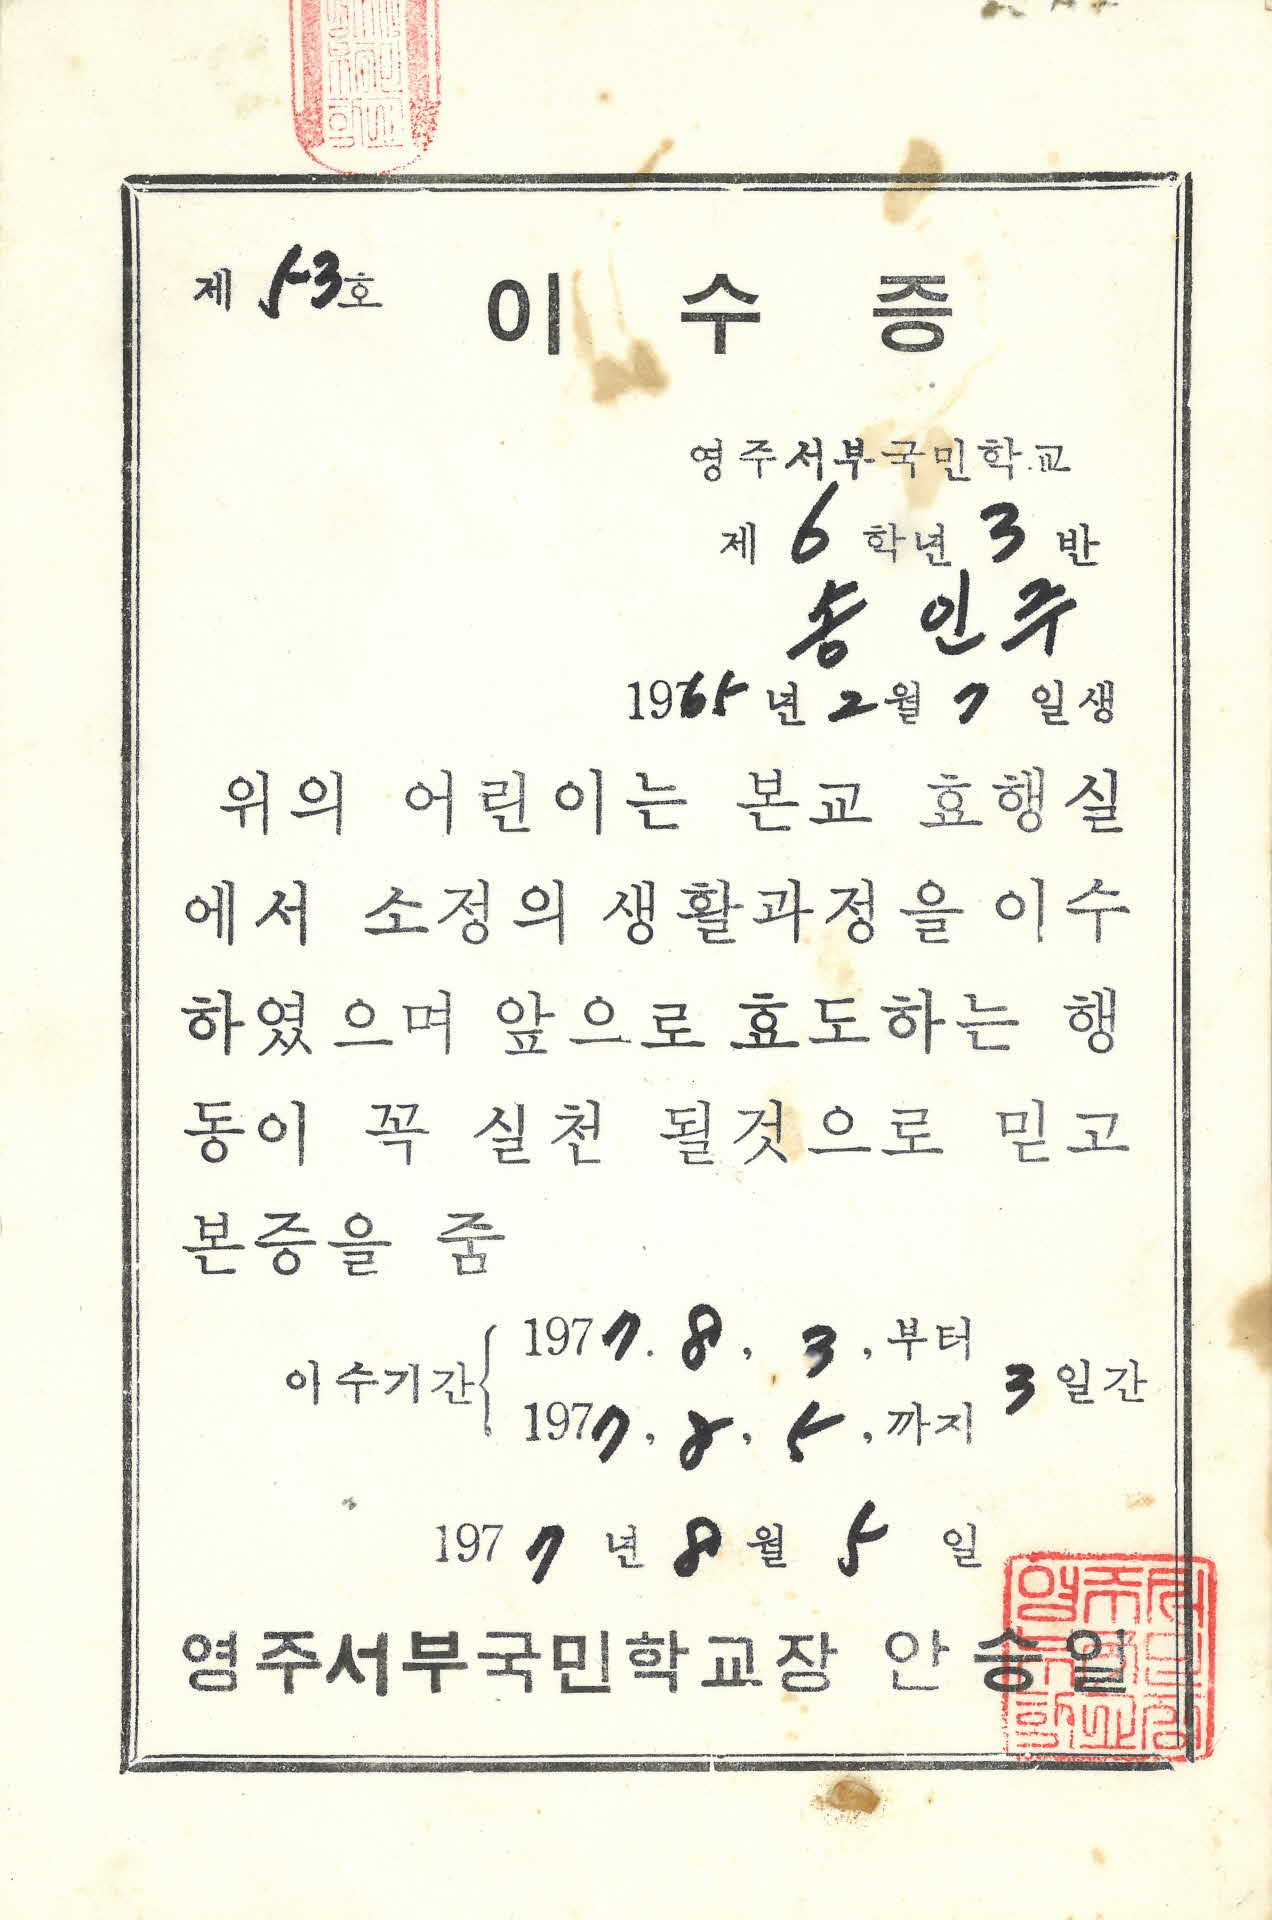 제 53호 이수증
영주서부국민학교
제 6 학년 3 반
송인주
1965년 2월 7일생
위의 어린이는 본교 효행실
에서 소정의 생활과정을 이수
하였으며 앞으로 효도하는 행
동이 꼭 실천 될것으로 믿고
본증을 줌
이수기간 1977. 8, 3, 부터
1977, 8, 5, 까지 3일간
1977년 8월 5일
영주서부국민학교장 안승일